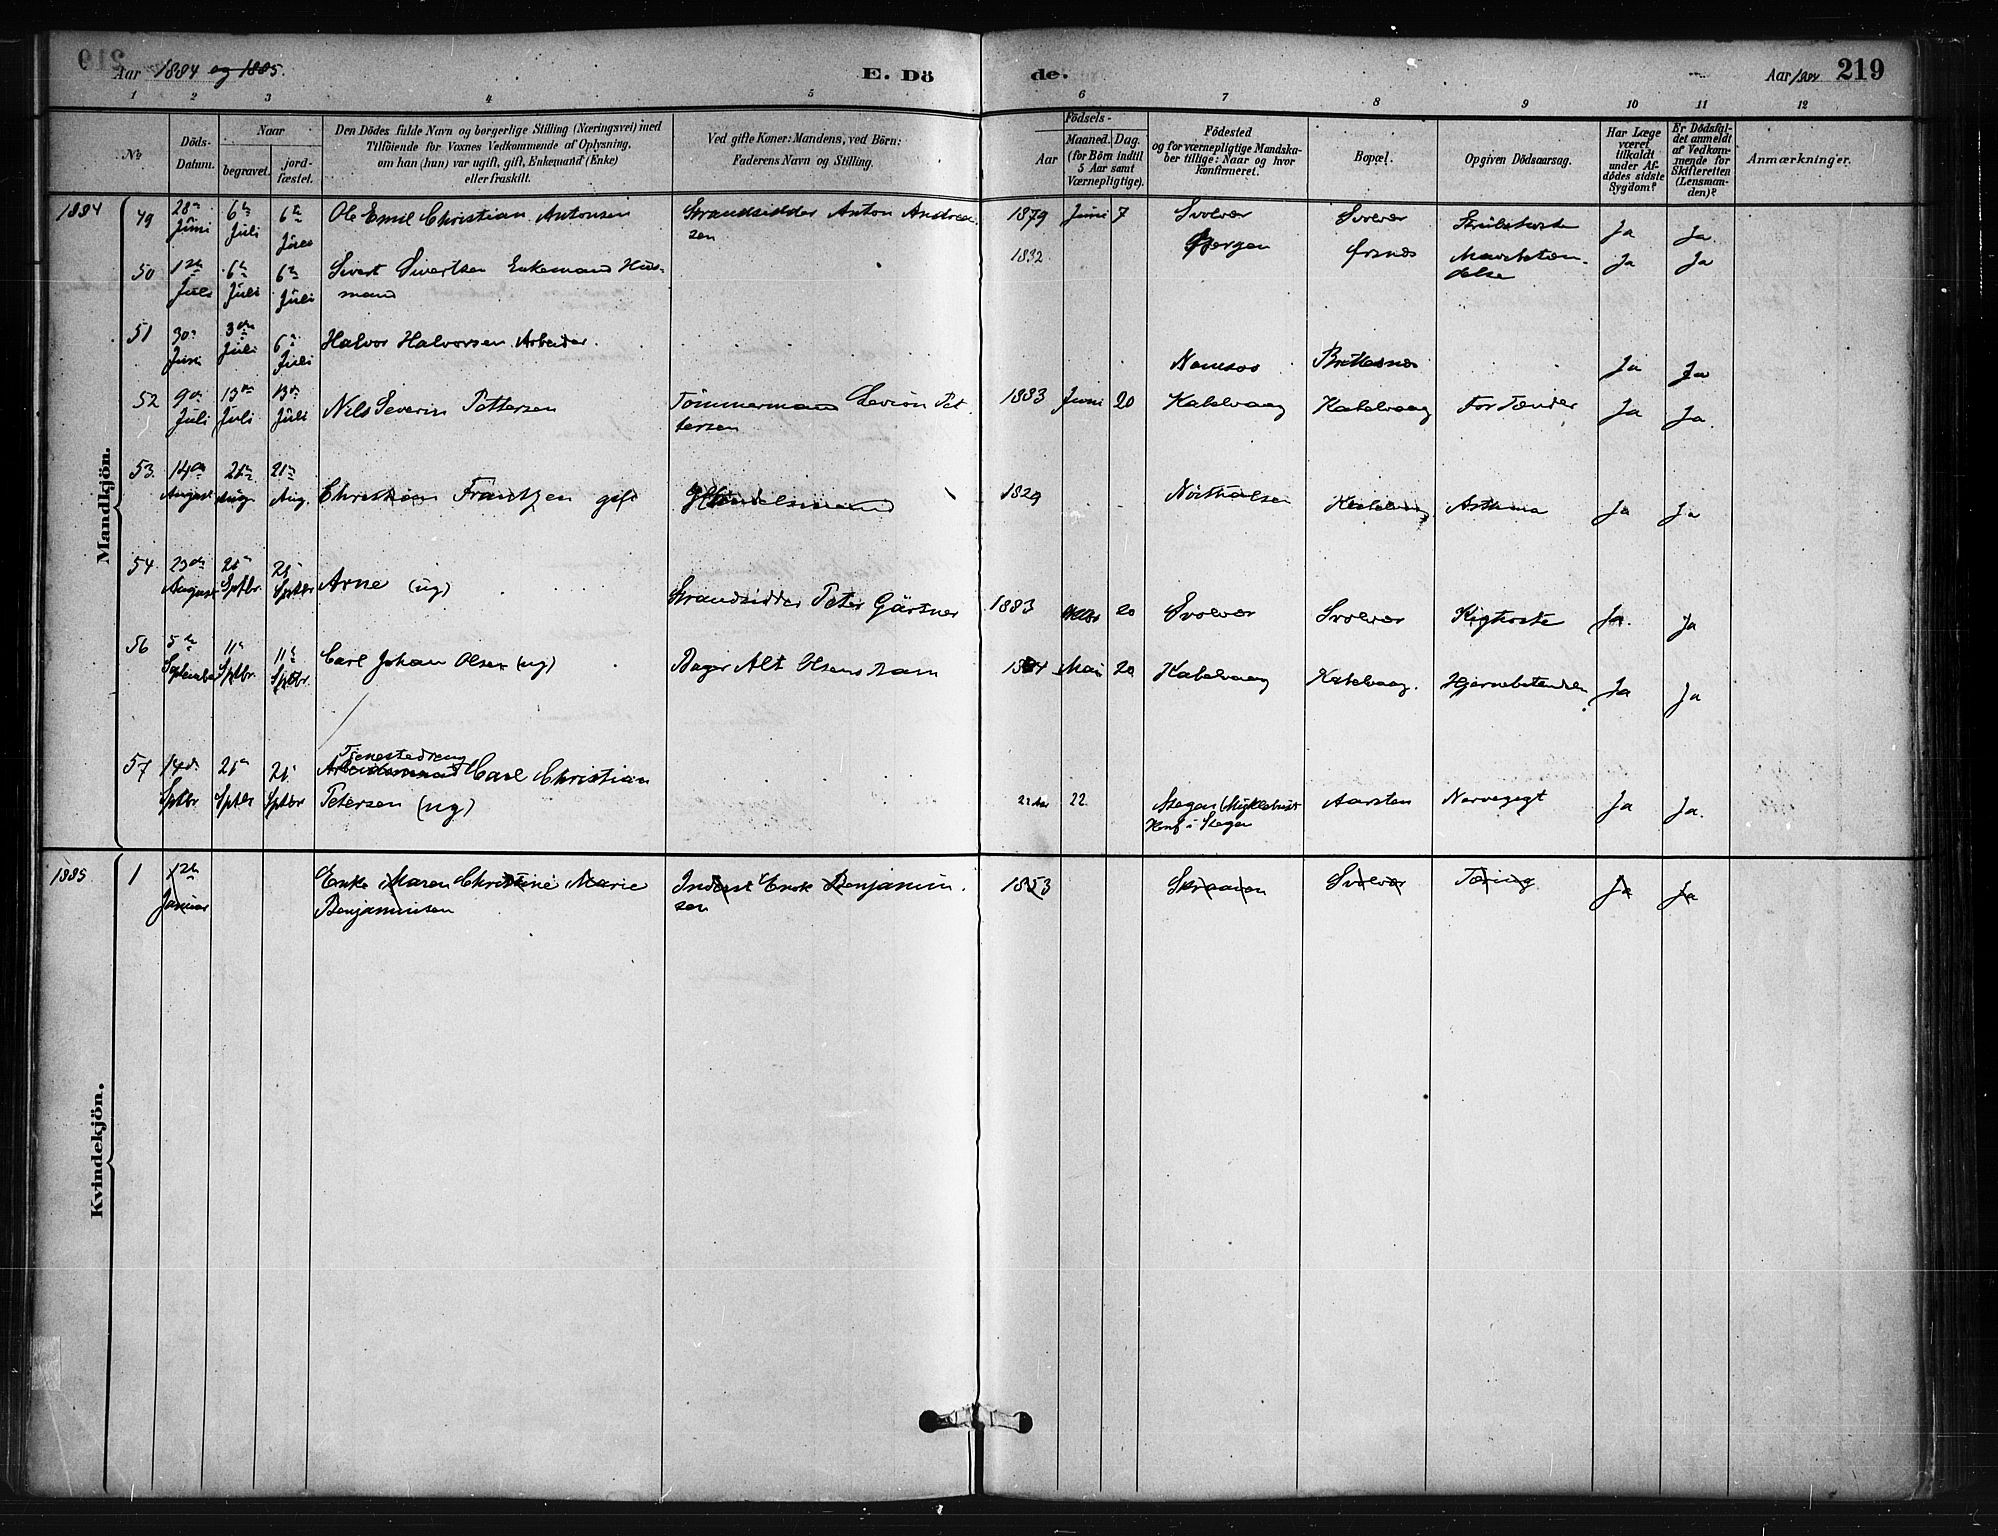 Aar 1884 og 1885.
E. Dö
de.
Aar 1884 219
1 2 3 4 5 6 7 8 9 10 11 12
No
Döds-
Datum.
Naar
begravet.
jord-
fæstet.
Den Dödes fulde Navn og borgerlige Stilling (Næringsvei) med
Tilföiende for Voxnes Vedkommende af Oplysning,
om han (hun) var ugift, gift, Enkemand (Enke)
eller fraskilt.
Ved gifte Koner: Mandens, ved Börn:
Faderens Navn og Stilling.
Födsels-
Aar
Maaned. Dag.
(for Börn indtil
5 Aar samt
Værnepligtige).
Födested
og for værnepligtige Mandska-
ber tillige: Naar og hvor
konfirmeret.
Bopæl.
Opgiven Dödsaarsag.
Har Læge
været
tilkaldt
under Af-
dödes sidste
Sygdom?
Er Dödsfal-
det anmeldt
af Vedkom-
mende for
Skifteretten
(Lensman-
den)?
Anmærkninger.
Mandkjön.
1884
49 28de Juni 6te Juli 6te Juli Ole Emil Christian Antonsen Strandsidder Anton Andrea
sen 1879 Juni 7 Svolvær Svolvær Strubehoste Ja Ja
50 1ste Juli 6te Juli 6te Juli Sivert Sivertsen Enkemand Hus-
mand 1832 Bergen Ørsnes Ja Ja
51 30te Juni 3die Juli 6te Juli Halvor Halvorsen Arbeider Namsos Brettesnes Ja Ja
52 9de Juli 13de Juli 13de Juli Nils Severin Pettersen Tömmermand Pet
tersen 1883 Juni 20 Kabelvaag Kabelvaag For Tænder Ja Ja
53 14de August 21de Aug 21de Aug. Christian Frantzen gift Handelsmand 1829 Kabelvaag Asthma Ja Ja
54 23de August 21de Sptbr. 21de Sptbr Arne (ug) Strandsidder Peter Gärtner 1883 20 Svolvær Svolvær Kighoste Ja Ja
56 5te September 11te Sptbr 11te Sptbr. Carl Johan Olsen (ug) Bager Alt Olsens barn 1884 Mai 20 Kabelvaag Kabelvaag. Hjernebetændelse Ja Ja
57 14de Sptbr 21de Sptbr 21de Sptbr Tjenestedreng
Arbeidsmand Carl Christian
Petersen (ug) 22 Aar 22. Stegen (Myklebust
Konf i Stegen Aarsten Nervegigt Ja Ja.
Kvindekjön.
1885
1 12te Januar Enke Maren Christine Marie
Benjaminsen Inderst Enok Benjamin
sen 1853 Skraaven Svolvær Tæring Ja Ja